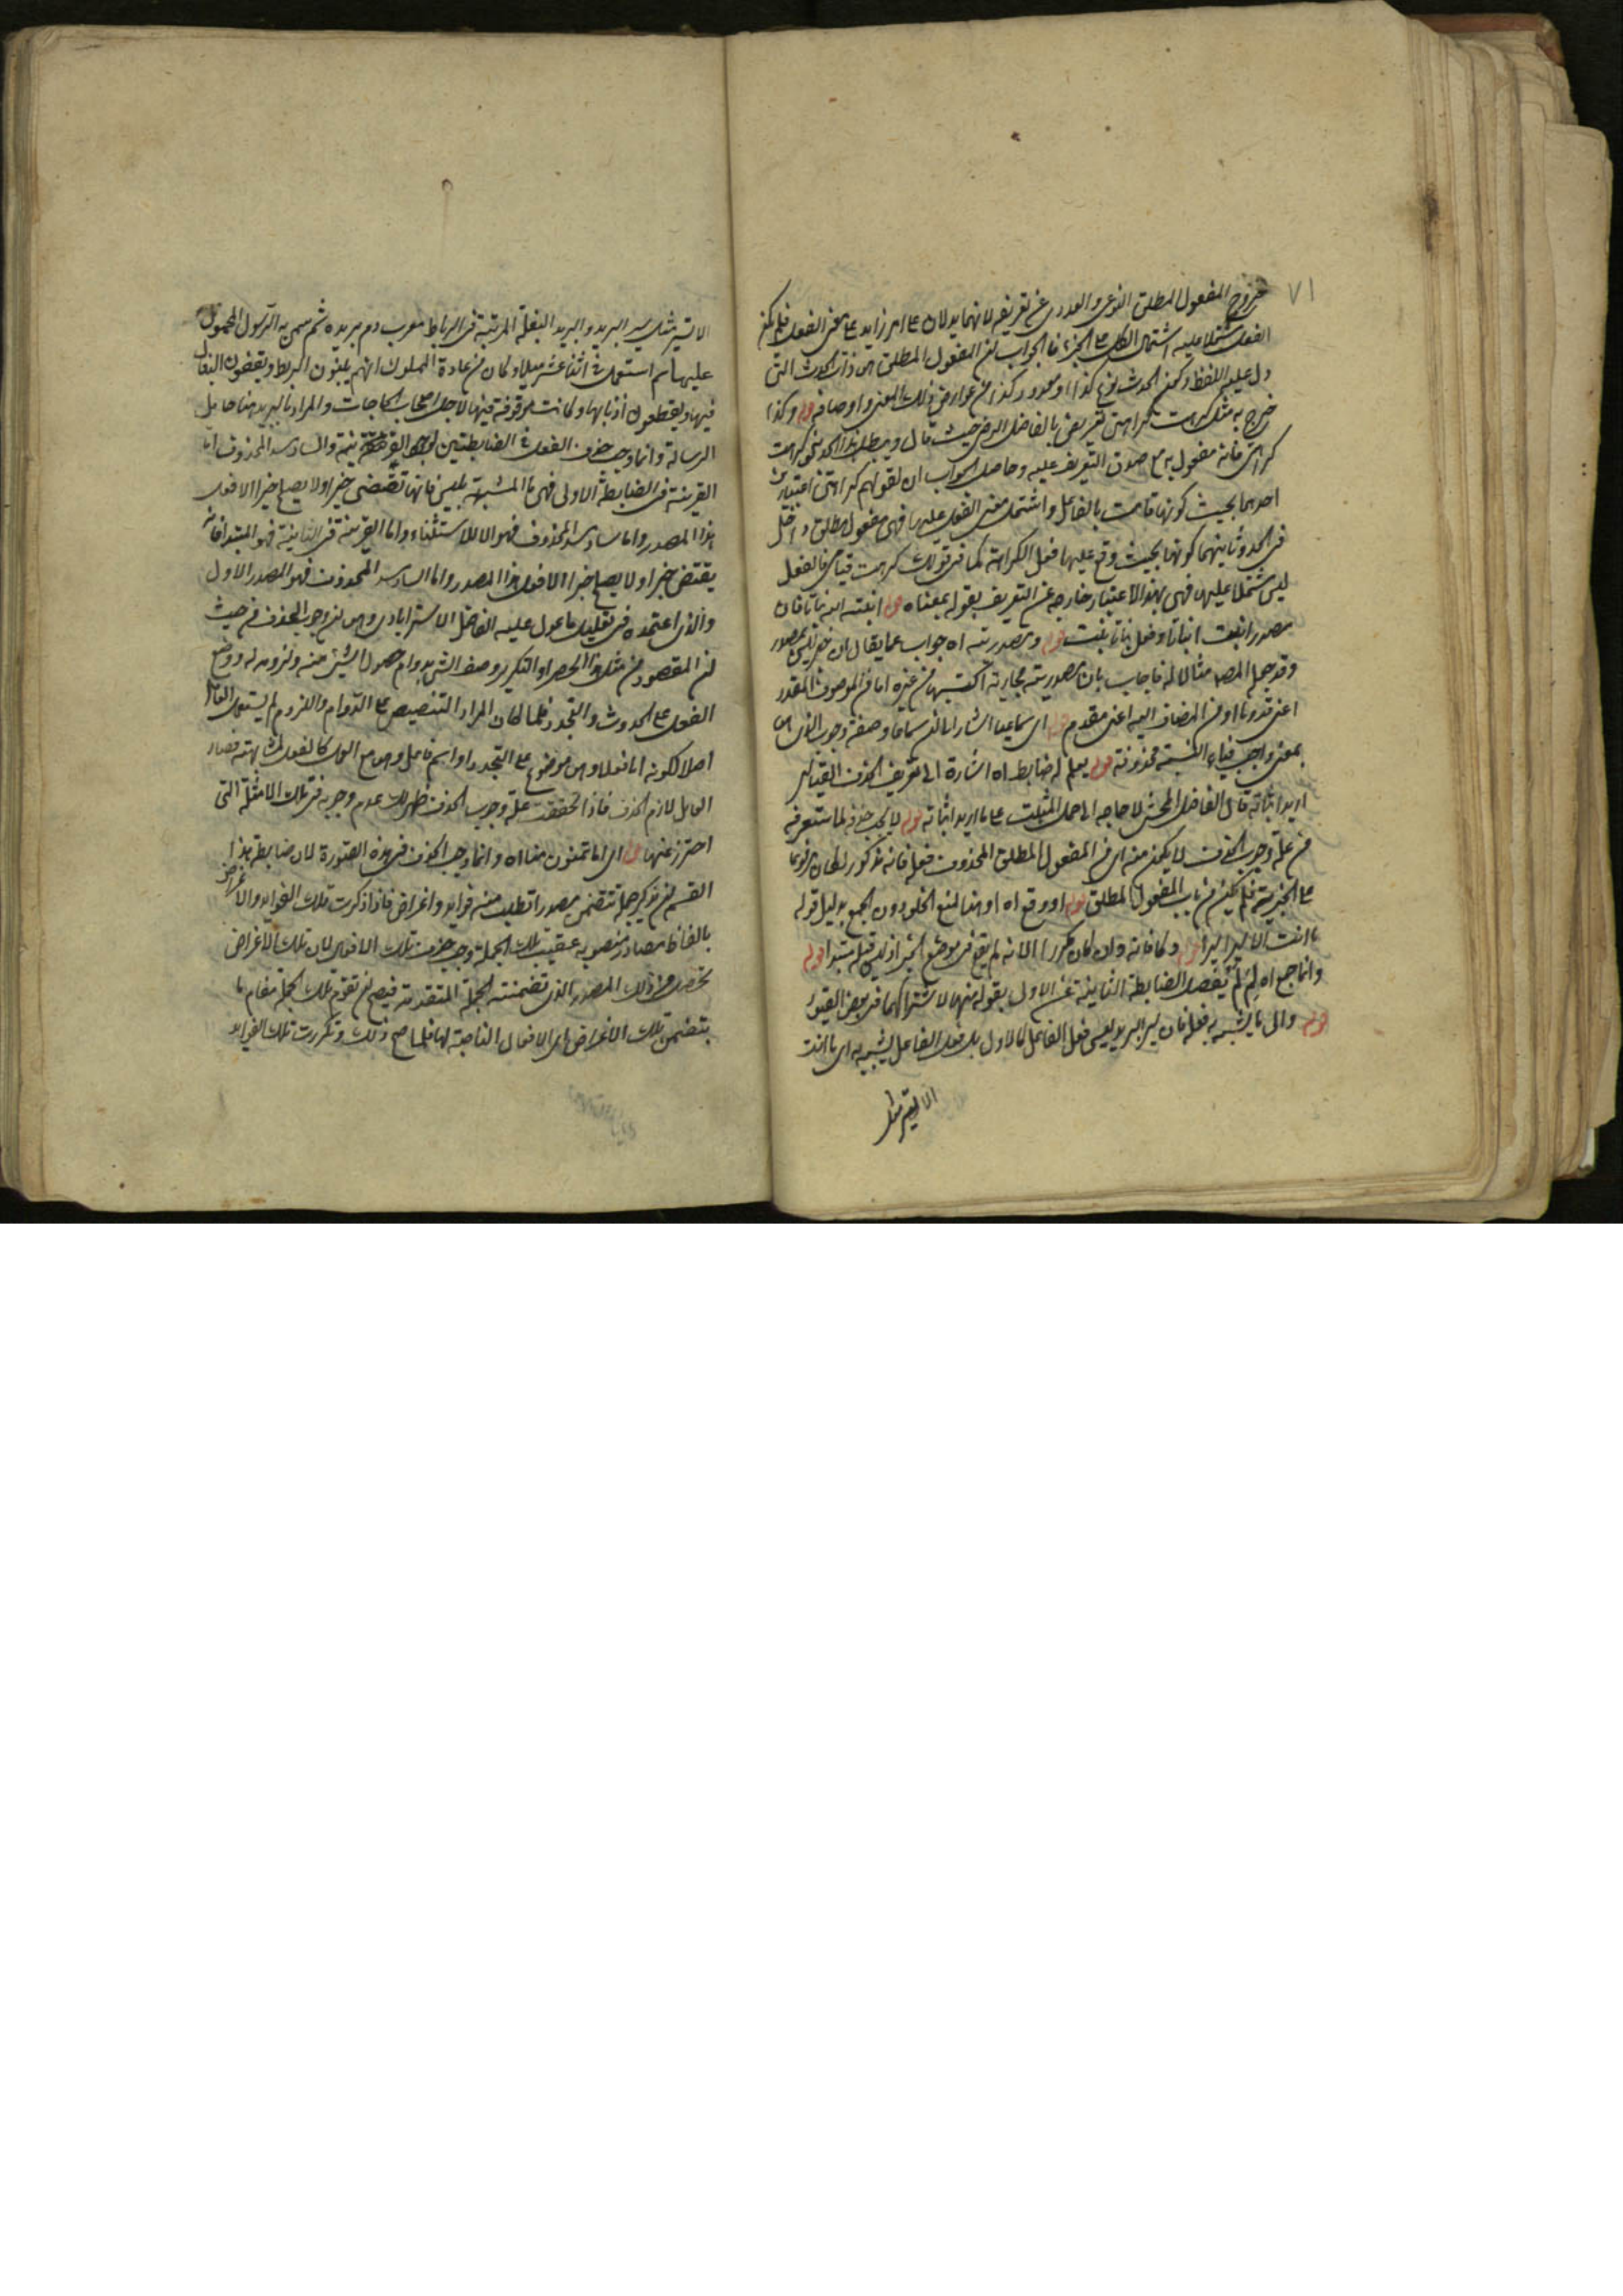 ٧١
خروج المفعول المطلق النوعى والعددى عن تعريفه لانهما يدلان على امر زايد على معنى الفعل فلم يكن
الفعل مشتملا عليه اشتمال الكل على الجزء فالجواب ان المفعول المطلق هى ذات الحدث التى
دل عليه اللفظ وكون الحدث نوع كذا او معدود كذا من عوارض ذلك المعنى واوصافه قوله وكذا
خرج به مثل كرهت كراهتى تعريض بالفاضل الرضى حيث قال ويبطل هذا الحد نحو كرهت
كراهتى فانه مفعول به مع صدق التعريف عليه وحاصل الجواب ان لقولهم كراهتى اعتبارين
احدهما بحيث كونها قامت بالفاعل واشتمل معنى الفعل عليها فهى مفعول مطلق داخل
فى الحد وثانيهما كونها بحيث وقع عليها فعل الكراهة كما فى قولك كرهت قيامى فالفعل
ليس مشتملا عليها فهى بهذا الاعتبار خارجه عن التعريف بقوله بمعناه قوله انبته الله نباتا فان
مصدر انبت انباتا وفعل نباتا نبت قوله ومصدريته اه جواب عما يقال ان خير ليس بمصدر
وقد جعله المصـ مثالا له فاجاب بان مصدريته مجازية اكتسبها من غيره اما من الموصوف المقدر
اعنى قدوما او من المضاف اليه اعنى مقدم قوله اى سماعيا اشار الى ان سماعا وصفة وجوب الذى هى
بمعنى واجب فياء النسبة محذوفة قوله يعلم له ضابط اه اشارة الى تعريف الحذف القياسى
اريد اثباته قال الفاضل المحشى لا حاجه الى حمل المثبت على ما اريد اثباته قوله لا يجب حذفه لما ستعرفه
من علة وجوب الحذف لا يكون منه اى من المفعول المطلق المحذوف فعله فانه مذكور لكان مرفوعا
على الخبرية فلم يكن من باب المفعول المطلق قوله او وقع اه او هذا لمنع الخلو دون الجمع بدليل قوله
ما انت الا سيرا سيرا قوله دكا فانه وان كان مكررا الا انه لم يقع فى موضع الخبر اذ ليس قبله مبتدا قوله
وانما جمع اه لم لم يفصل الضابطة الثانية عن الاولى بقوله منها لاشتراكهما فى بعض القيود
قوله والى ما يشبه به فعله فان سير البريد ليس فعل الفاعل كالاول بل فعل الفاعل يشبه به اى ما انت
الا تسير مثل
الا تسير مثل سير البريد والبريد البغلة المرتبة فى الرباط معرب دم بريده ثم سمى به الرسول المحمول
عليها ثم استعمل فى اثنا عشر ميلا وكان من عادة الملوك انهم يبنون الربط ويقفون البغال
فيها ويقطعون اذنابها وكانت موقوفة فيها لاجل اصحاب الحاجات والمراد بالبريد هنا حامل
الرسالة وانما وجب حذف الفعل فى الضابطتين لوجود القرينة والساد مسد المحذوف اما
القرينة فى الضابطة الاولى فهى ما المشبهة بليس فانها تقتضى خبرا ولا يصلح خبرا الا فعل
هذا المصدر واما ساد مسد المحذوف فهو الا للاستثناء واما القرينة فى الثانية فهو المبتدا فانه
يقتضى خبرا ولا يصلح خبرا الا فعل هذا المصدر واما الساد مسد المحذوف فهو المصدر الاول
والذى اعتمده فى تعليل ما عول عليه الفاضل الاسترابادى وهى ان وجوب الحذف من حيث
ان المقصود من مثل هذا الحصر او التكرير وصف الشئ بدوام حصول الشئ منه ولزومه له ووضع
الفعل على الحدوث والتجدد فلما كان المراد التنصيص على الدوام واللزوم لم يستعمل العامل
اصلا لكونه اما فعلا وهى موضوع على التجدد او اسم فاعل وهى مع العمل كالفعل لمشابهته فصار
العامل لازم الحذف فاذا تحققت علة وجوب الحذف ظهر لك عدم وجوبه فى تلك الامثلة التى
احترز عنها قوله اى اما تمنون منا اه وانما وجب الحذف فى هذه الصورة لان ضابطة هذا
القسم ان تذكر جملة تتضمن مصدرا تطلب منه فوايد واغراض فاذا ذكرت تلك الفوايد والاغراض
بالفاظ مصادر منصوبه عقيب تلك الجملة وجب حذف تلك الافعال لان تلك الاغراض
تحصل من ذلك المصدر الذى تضمنته الجملة المتقدمة فيصح ان تقوم تلك الجملة مقام ما
يتضمن تلك الاغراض اى الافعال الناصبة لها فلما صح ذلك وتكررت تلك الفوايد